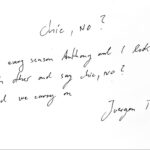 chic, no?
every season Anthony and I look
other and say chic, no?
we carry on
Juergen T